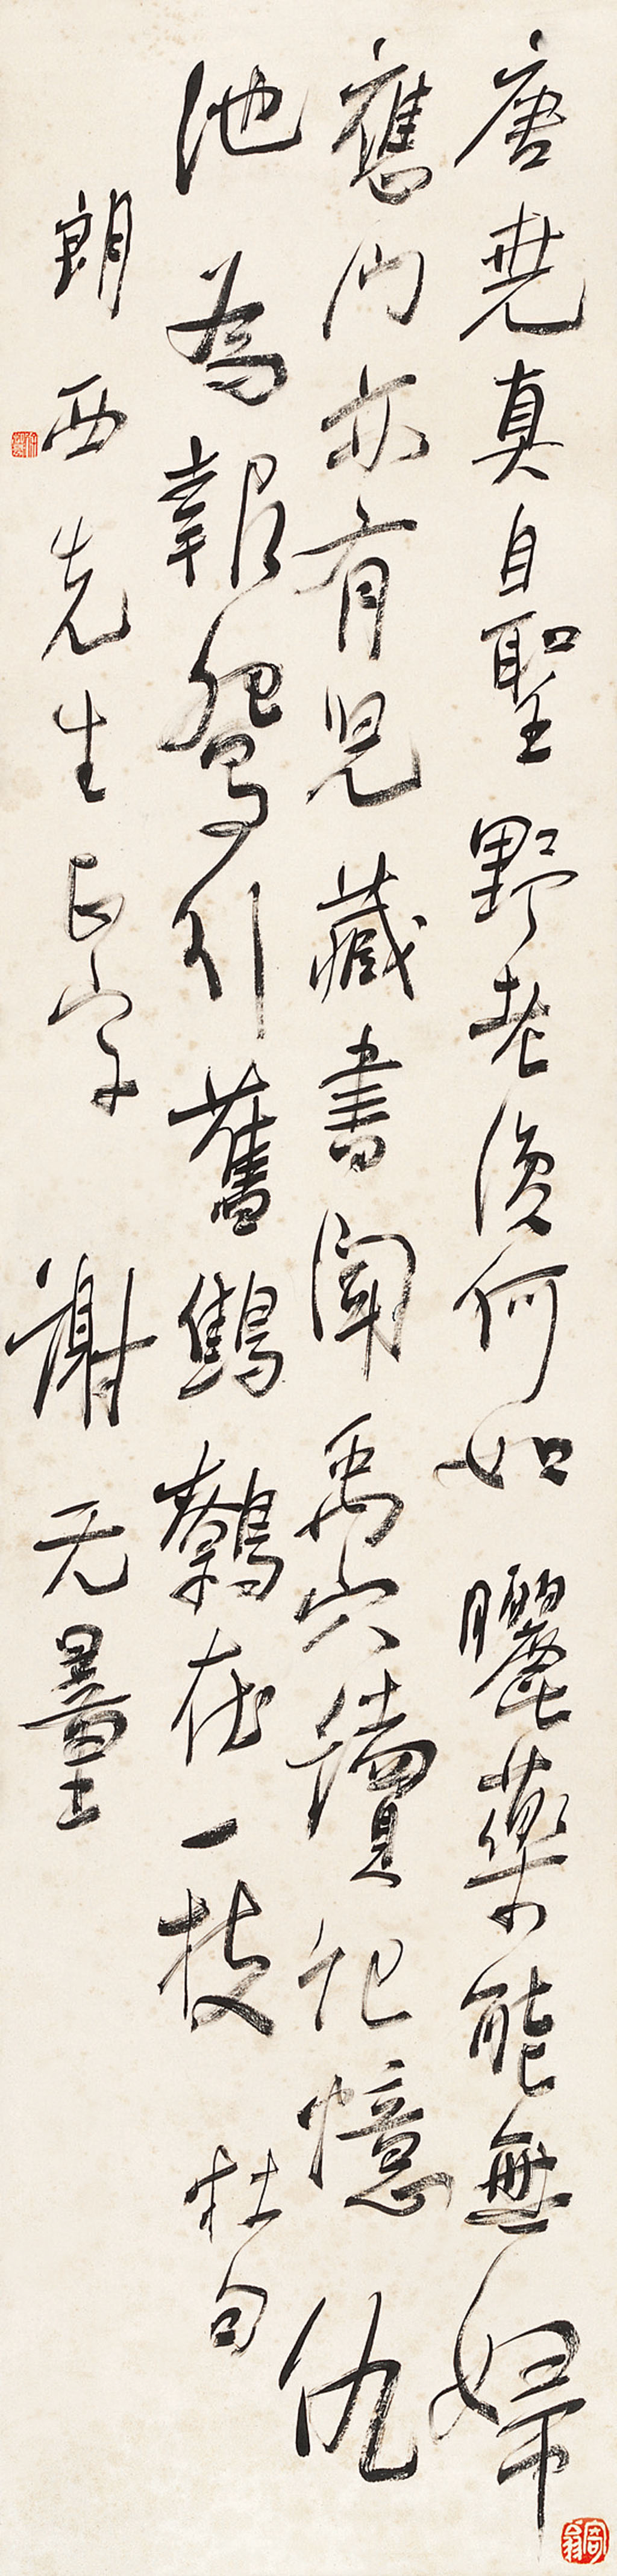 唐堯真自聖野老復何如曬藥能無婦
應門亦有兒藏書聞禹穴讀記憶仇
池為報鴛行舊鷦鷯在一枝杜句
朗西先生正字 謝无量